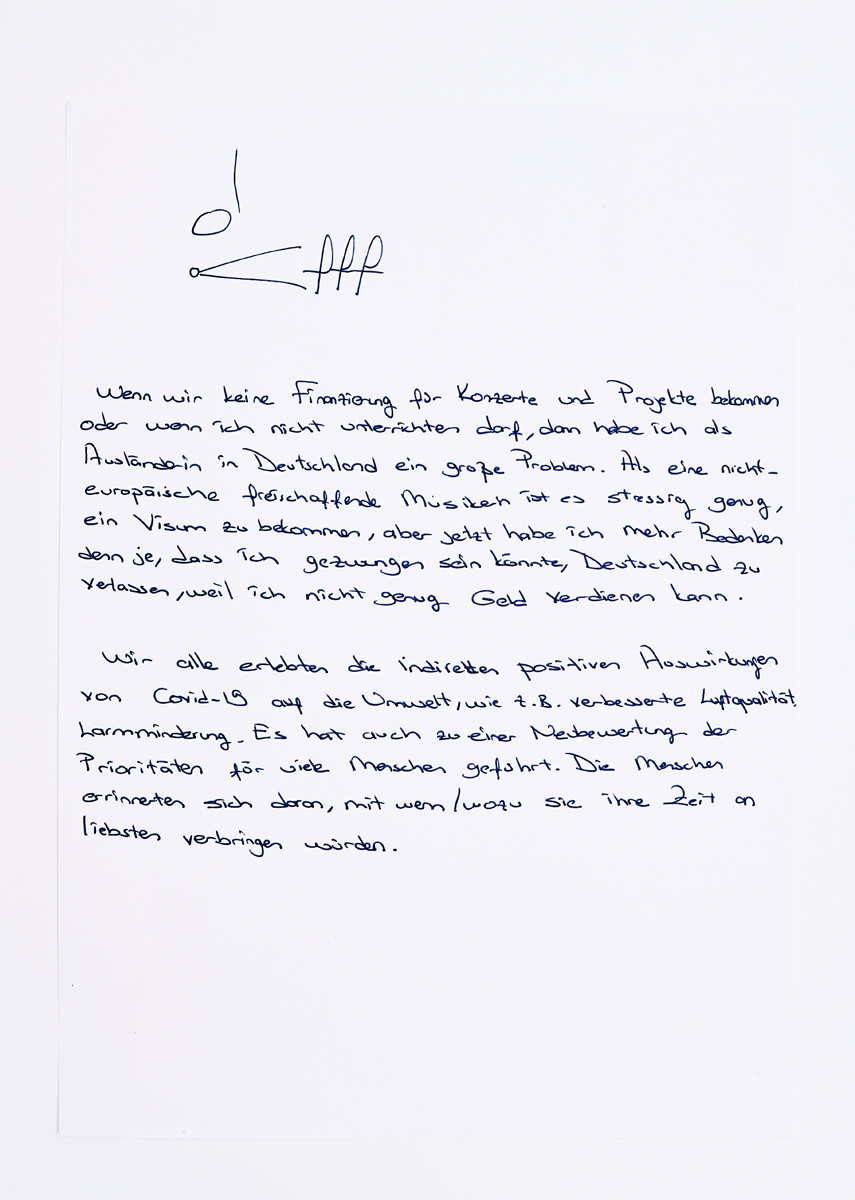 fff
Wenn wir keine Finanzierung für Konzerte und Projekte bekommen
oder wenn ich nicht unterrichten darf, dan habe ich als
Ausländerin in Deutschland ein große Problem. Als eine nicht-
europäische freischaffende Musikerin ist es stressig genug,
ein Visum zu bekommen, aber jetzt habe ich mehr Bedenken
denn je, dass ich gezwungen sein könnte, Deutschland zu
verlassen, weil ich nicht genug Geld verdienen kann.
Wir alle erlebten die indirekten positiven Auswirkungen
von Covid-19 auf die Umwelt, wie z.B. verbesserte Luftqualität,
Lärmminderung. Es hat auch zu einer Neubewertung der
Prioritäten für viele Menschen geführt. Die Menschen
erinnerten sich daran, mit wem/wozu sie ihre Zeit am
liebsten verbringen würden.